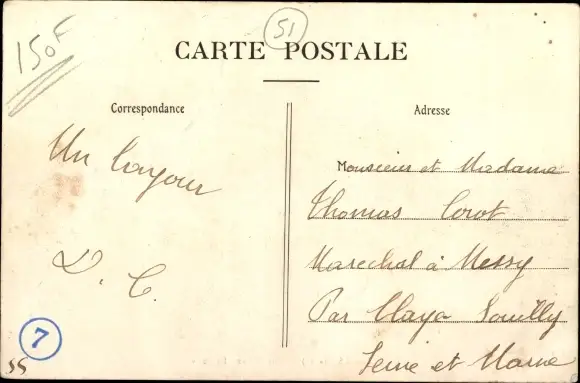 150F
51
CARTE POSTALE
Correspondance
Adresse
Un bonjour
D. C.
Monsieur et Madame
Thomas Corot
Marechal à Messy
Par Claye Souilly
Seine et Marne
7
55